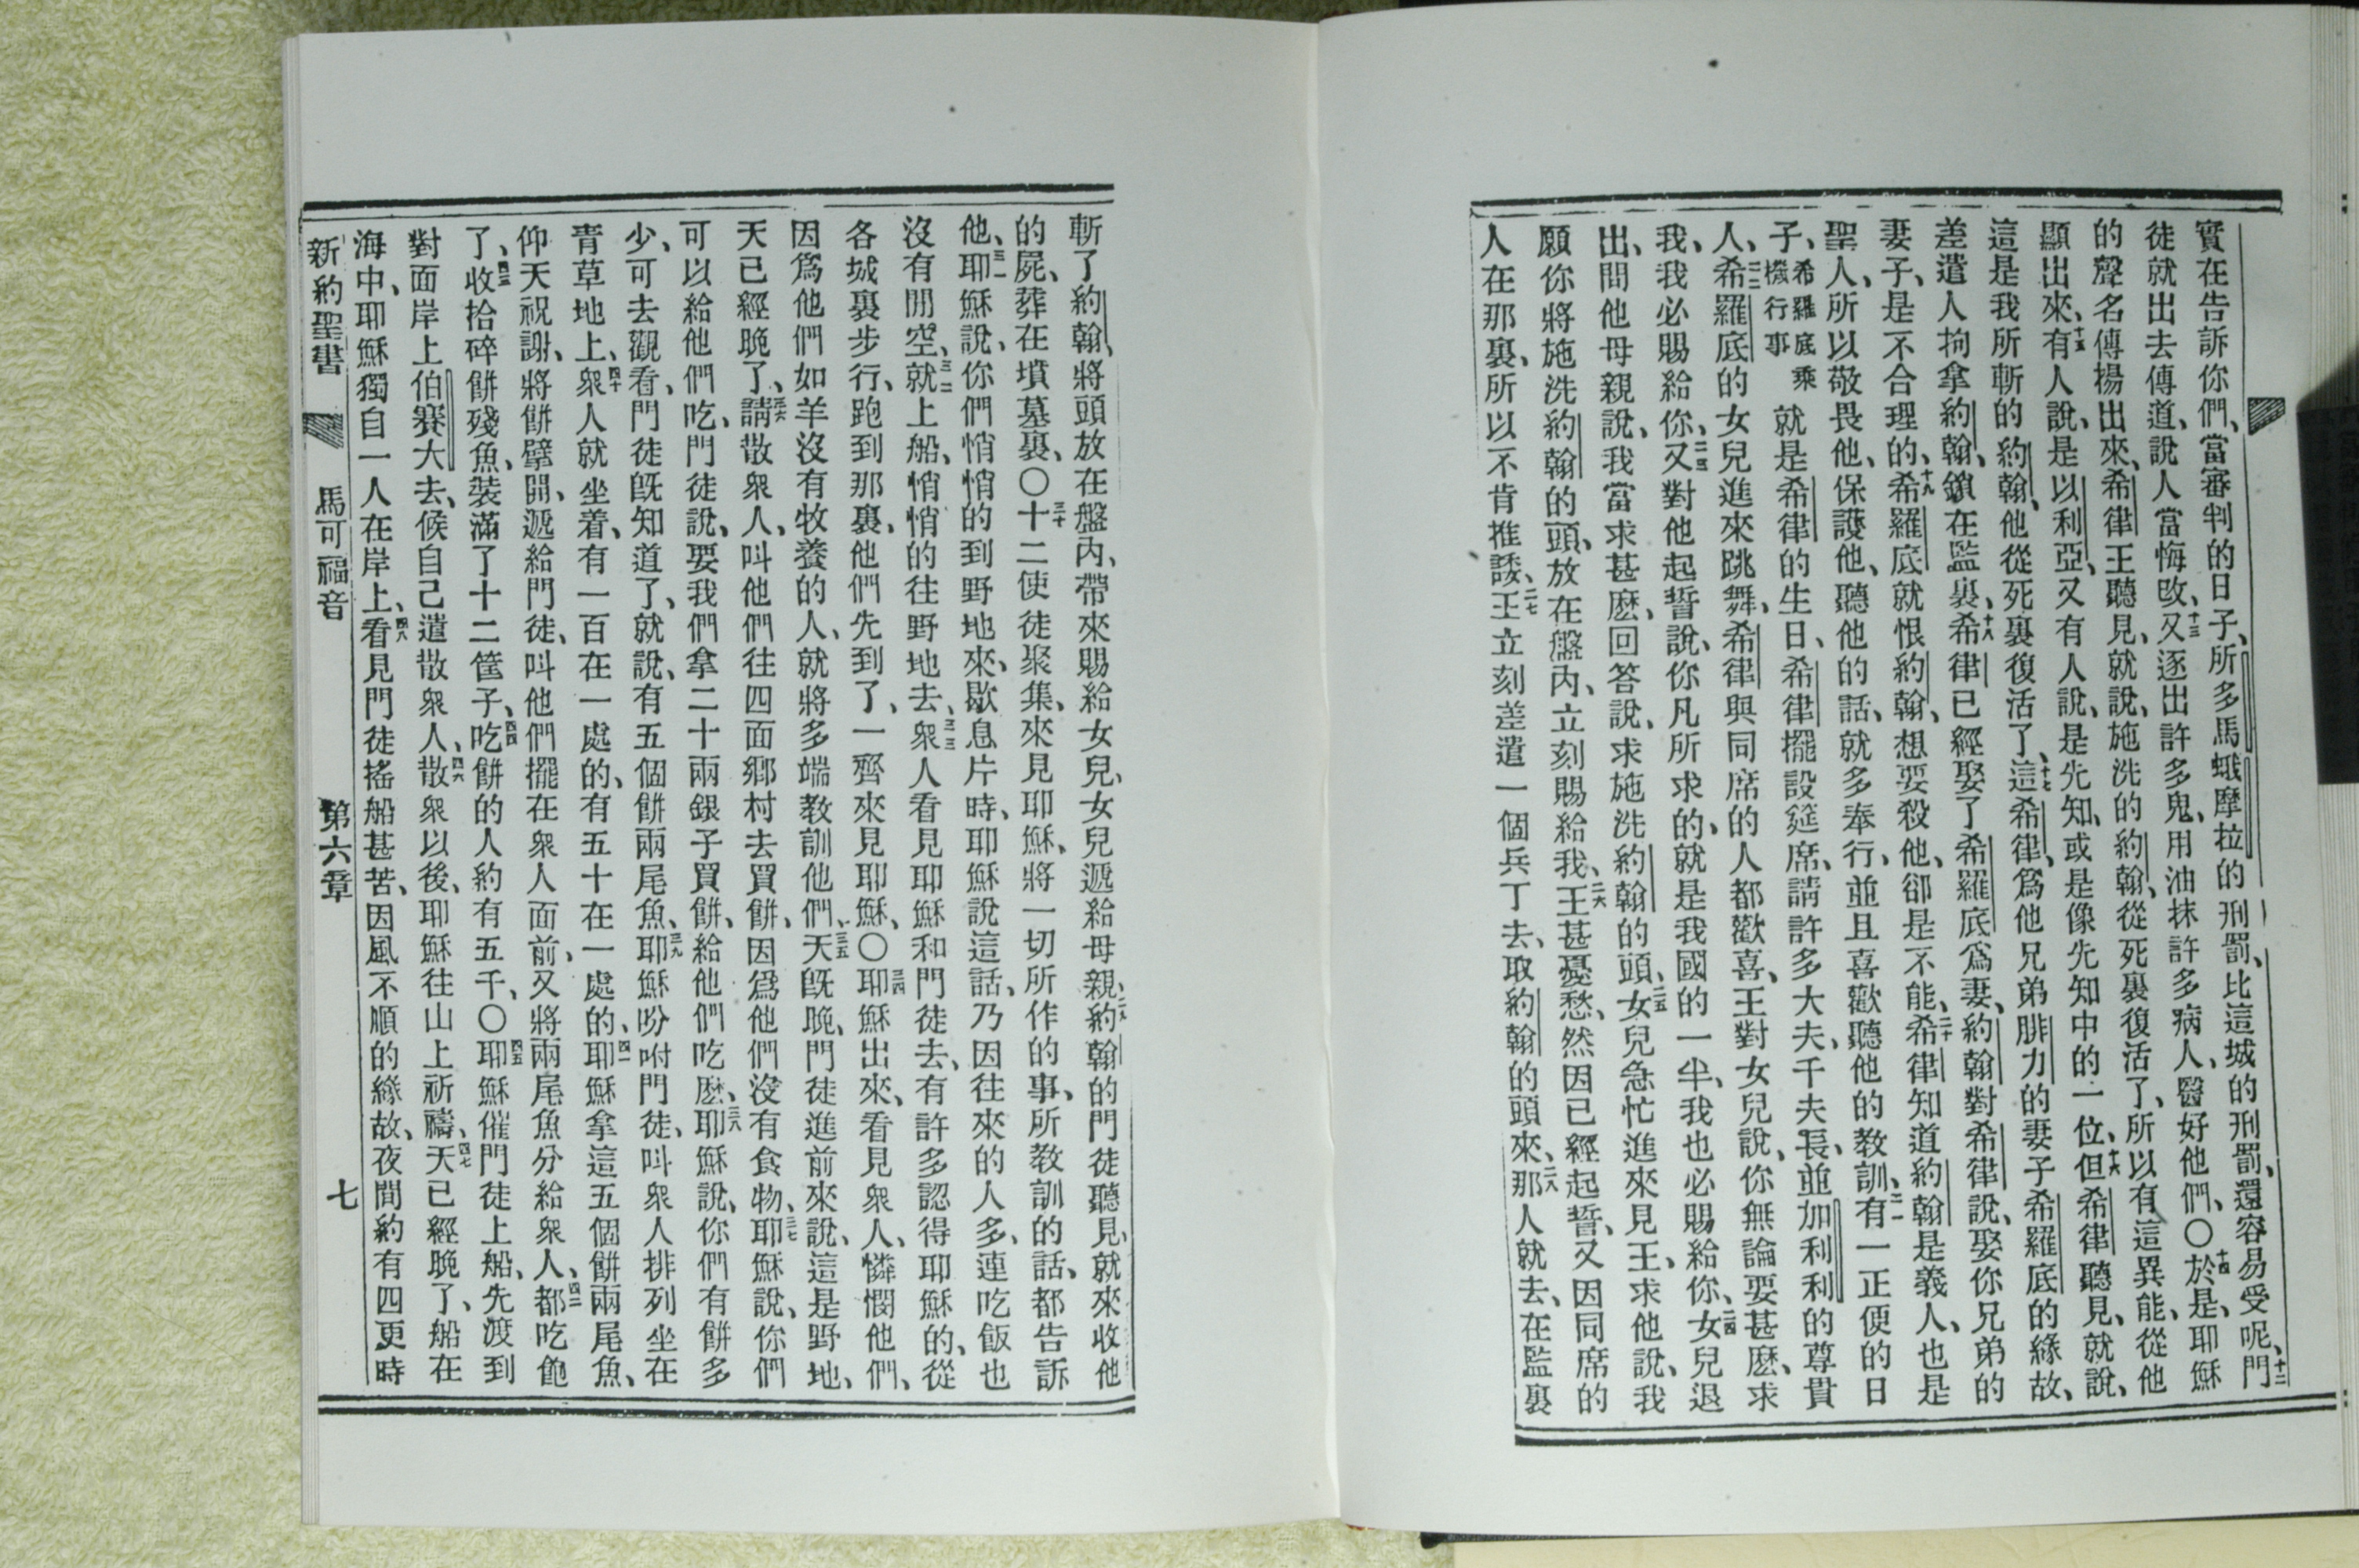 實在告訴你們、當審判的日子、所多馬蛾摩拉的刑罰、比這城的刑罰、還容易受呢、十二門
徒就出去傳道、說人當悔改、十三又逐出許多鬼、用油抹許多病人、醫好他們、〇十四於是、耶穌
的聲名傳揚出來、希律王聽見、就說、施洗的約翰、從死裏復活了、所以有這異能、從他
顯出來、十五有人說、是以利亞、又有人說、是先知、或是像先知中的一位、十六但希律聽見、就說、
這是我所斬的約翰、他從死裏復活了、十七這希律、爲他兄弟腓力的妻子希羅底的緣故、
差遣人拘拿約翰、鎖在監裏、十八希律已經娶了希羅底爲妻、約翰對希律說、娶你兄弟的
妻子、是不合理的、十九希羅底就恨約翰、想要殺他、卻是不能、二十希律知道約翰是義人、也是
聖人、所以敬畏他、保護他、聽他的話、就多奉行、並且喜歡聽他的教訓、二一有一正便的日
子、希羅底乘機行事就是希律的生日、希律擺設筵席、請許多大夫、千夫長、並加利利的尊貴
人、二二希羅底的女兒進來跳舞、希律與同席的人都歡喜、王對女兒說、你無論要甚麽、求
我、我必賜給你、二三又對他起誓說、你凡所求的、就是我國的一半、我也必賜給你、二四女兒退
出、問他母親說、我當求甚麽、回答說、求施洗約翰的頭、二五女兒急忙進來見王、求他說、我
願你將施洗約翰的頭、放在盤內、立刻賜給我、二六王甚憂愁、然因已經起誓、又因同席的
人在那裏、所以不肯推諉、二七王立刻差遣一個兵丁去、取約翰的頭來、二八那人就去、在監裏
斬了約翰、將頭放在盤內、帶來賜給女兒、女兒遞給母親、二九約翰的門徒聽見、就來收他
的屍、葬在墳墓裏、〇三十十二使徒聚集、來見耶穌、將一切所作的事、所教訓的話、都告訴
他、三一耶穌說、你們悄悄的到野地來、歇息片時、耶穌說這話、乃因往來的人多、連吃飯也
沒有閒空、三二就上船、悄悄的往野地去、三三衆人看見耶穌和門徒去、有許多認得耶穌的、從
各城裏步行、跑到那裏、他們先到了、一齊來見耶穌、〇三四耶穌出來、看見衆人、憐憫他們、
因爲他們如羊沒有牧養的人、就將多端教訓他們、三五天既晚、門徒進前來說、這是野地、
天已經晚了、三六請散衆人、叫他們往四面鄉村去買餅、因爲他們沒有食物、三七耶穌說、你們
可以給他們吃、門徒說、要我們拿二十兩銀子買餅、給他們吃麽、三八耶穌說、你們有餅多
少、可去觀看、門徒既知道了、就說、有五個餅兩尾魚、三九耶穌吩咐門徒、叫衆人排列坐在
青草地上、四十衆人就坐着、有一百在一處的、有五十在一處的、四一耶穌拿這五個餅兩尾魚、
仰天祝謝、將餅擘開、遞給門徒、叫他們擺在衆人面前、又將兩尾魚分給衆人、四二都吃飽
了、四三收拾碎餅殘魚、裝滿了十二筐子、四四吃餅的人約有五千、〇四五耶穌催門徒上船、先渡到
對面岸上伯賽大去、候自己遣散衆人、四六散衆以後、耶穌往山上祈禱、四七天已經晚了、船在
海中、耶穌獨自一人在岸上、四八看見門徒搖船甚苦、因風不順的緣故、夜間約有四更時
新約聖書 馬可福音 第六章 七